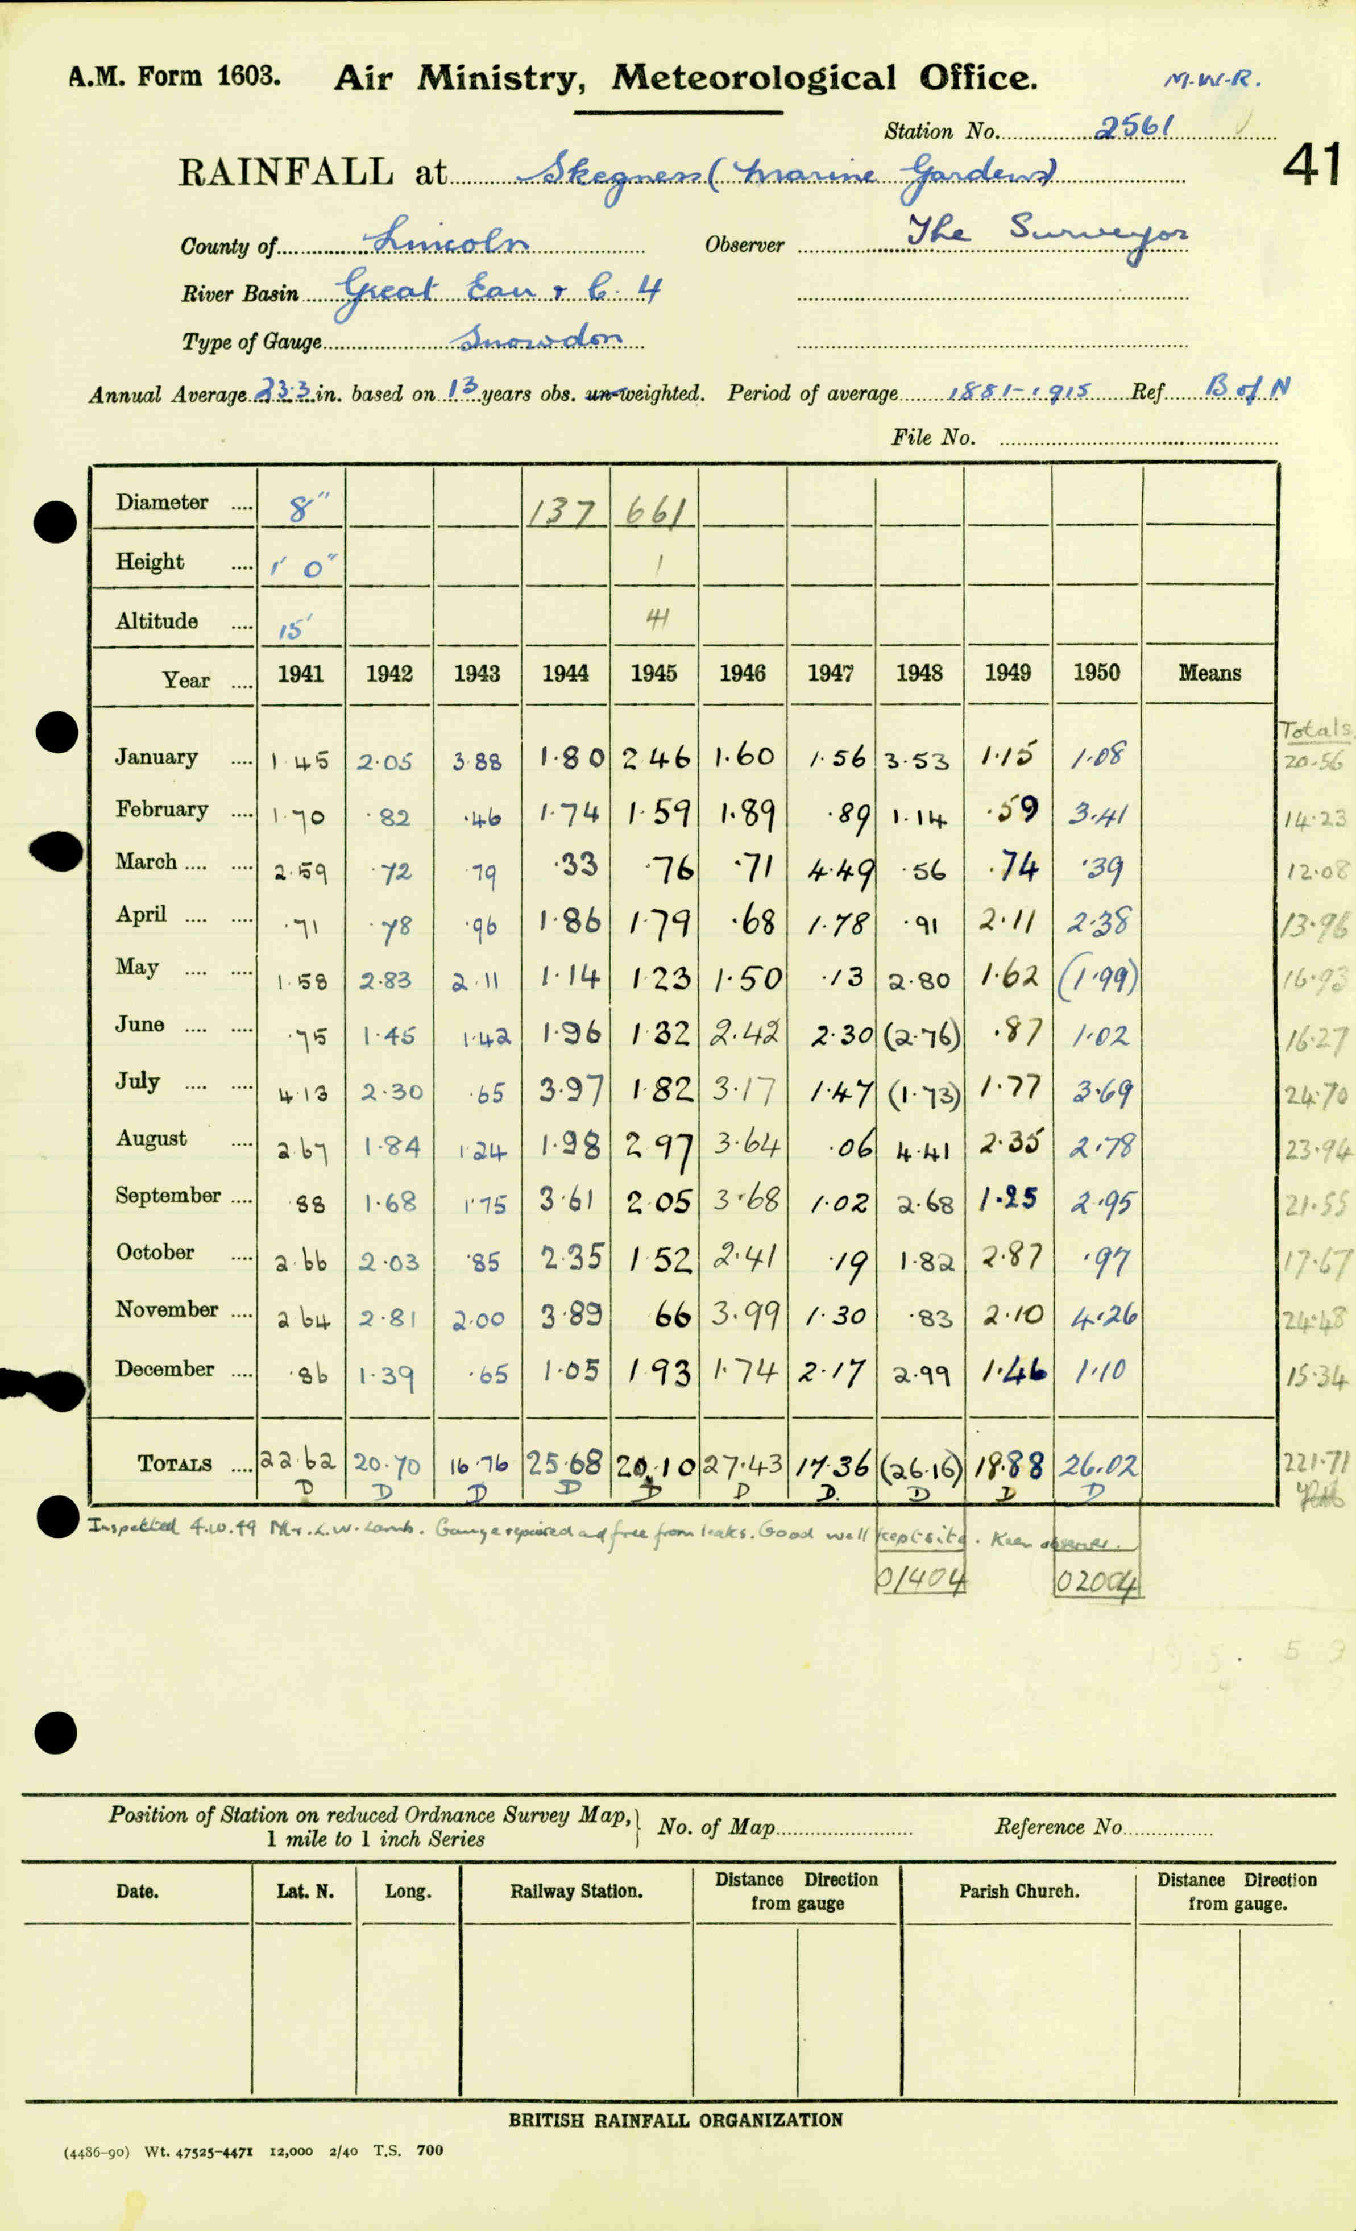 A.M. Form 1603. Air Ministry, Meteorological Office. M.W.R.
Station No. 2561
41
RAINFALL at Skegness (Marine Gardens)
County of Lincoln Observer The Surveyor
River Basin Great Eau & C. 4
Type of Gauge Snowdon
Annual Average 23.3 in. based on 13 years obs. un-weighted. Period of average 1881-1915 Ref. B of N
File No.
Diameter .... 8" 137 661
Height .... 1' 0" 1
Altitude .... 15' 41
Year .... 1941 1942 1943 1944 1945 1946 1947 1948 1949 1950 Means
Totals
January .... 1.45 2.05 3.88 1.80 2.46 1.60 1.56 3.53 1.15 1.08 20.56
February .... 1.70 .82 .46 1.74 1.59 1.89 .89 1.14 .59 3.41 14.23
March .... .... 2.59 .72 .79 .33 .76 .71 4.49 .56 .74 .39 12.08
April .... .... .71 .78 .96 1.86 1.79 .68 1.78 .91 2.11 2.38 13.96
May .... .... 1.58 2.83 2.11 1.14 1.23 1.50 .13 2.80 1.62 (1.99) 16.93
June .... .... .75 1.45 1.42 1.96 1.32 2.42 2.30 (2.76) .87 1.02 16.27
July .... .... 4.13 2.30 .65 3.97 1.82 3.17 1.47 (1.73) 1.77 3.69 24.70
August .... 2.67 1.84 1.24 1.98 2.97 3.64 .06 4.41 2.35 2.78 23.94
September .... .88 1.68 1.75 3.61 2.05 3.68 1.02 2.68 1.25 2.95 21.55
October .... 2.66 2.03 .85 2.35 1.52 2.41 .19 1.82 2.87 .97 17.67
November .... 2.64 2.81 2.00 3.89 66 3.99 1.30 .83 2.10 4.26 24.48
December .... .86 1.39 .65 1.05 1.93 1.74 2.17 2.99 1.46 1.10 15.34
TOTALS .... 22.62 20.70 16.76 25.68 20.10 27.43 17.36 (26.16) 18.88 26.02 221.71
D D D D D D D. D D D
Inspected 4.10.49 Mr. L.W. Lamb. Gauge repaired and free from leaks. Good well kept site. Keen observer.
01404 02004
Position of Station on reduced Ordnance Survey Map,} No. of Map Reference No.
1 mile to 1 inch Series
Date. Lat. N. Long. Railway Station. Distance Direction from gauge Parish Church. Distance Direction from gauge.
BRITISH RAINFALL ORGANIZATION
(4486-90) Wt. 47525-4471 12,000 2/40 T.S. 700